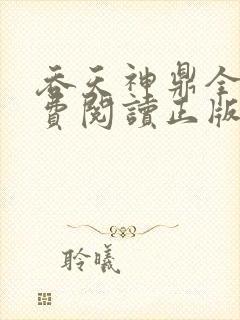 吞天神鼎全
費閱讀正版
聆曦